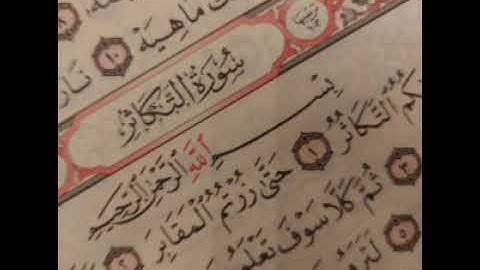 مَا هِيَهْ ١٠ نَار
سُورَةُ التَّكَاثُرِ
بِسْمِ اللَّهِ الرَّحْمَٰنِ الرَّحِيمِ
كُمُ التَّكَاثُرُ ١ حَتَّىٰ زُرْتُمُ الْمَقَابِرَ ٢
٣ ثُمَّ كَلَّا سَوْفَ تَعْلَمُ
٥ لَتَرَوُ